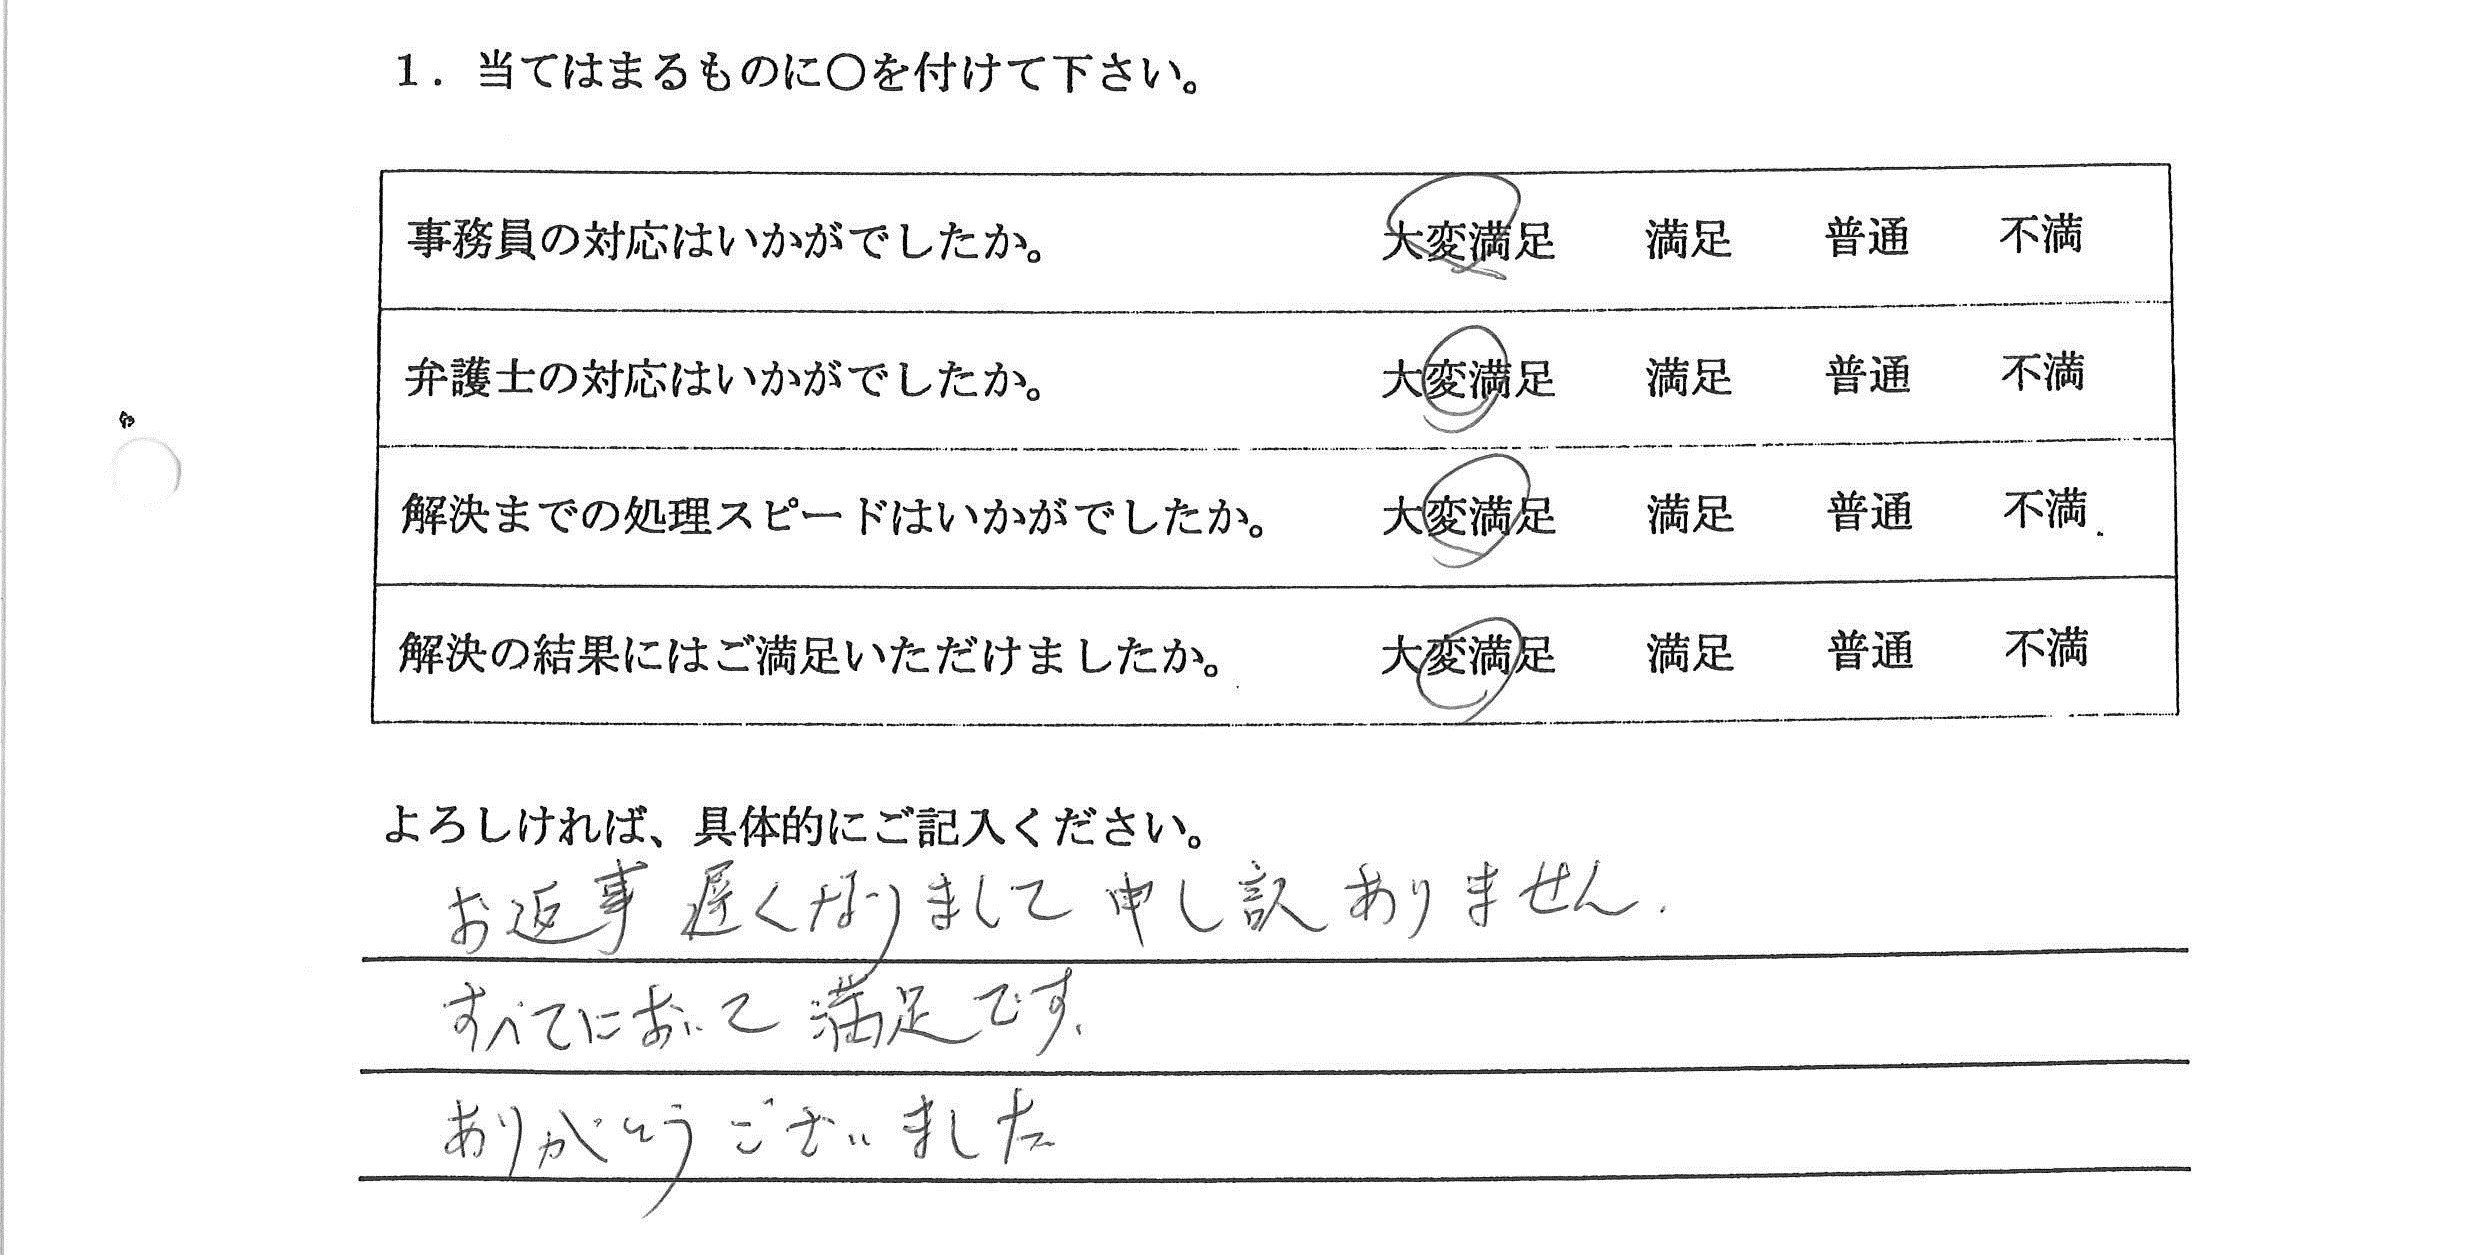 1．当てはまるものに〇を付けて下さい。
事務員の対応はいかがでしたか。 大変満足 満足 普通 不満
弁護士の対応はいかがでしたか。 大変満足 満足 普通 不満
解決までの処理スピードはいかがでしたか。 大変満足 満足 普通 不満
解決の結果にはご満足いただけましたか。 大変満足 満足 普通 不満
よろしければ、具体的にご記入ください。
お返事遅くなりまして申し訳ありません.
すべてにおいて満足です.
ありがとうございました